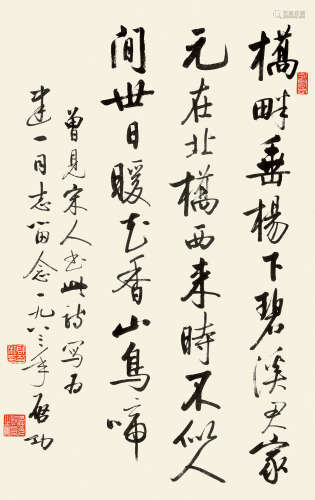 橋畔垂楊下碧溪君家
元在北橋西来時不似人
間世日暖花香山鳥啼
曾見宋人書此詩寫为
建一同志留念一九八三年啟功